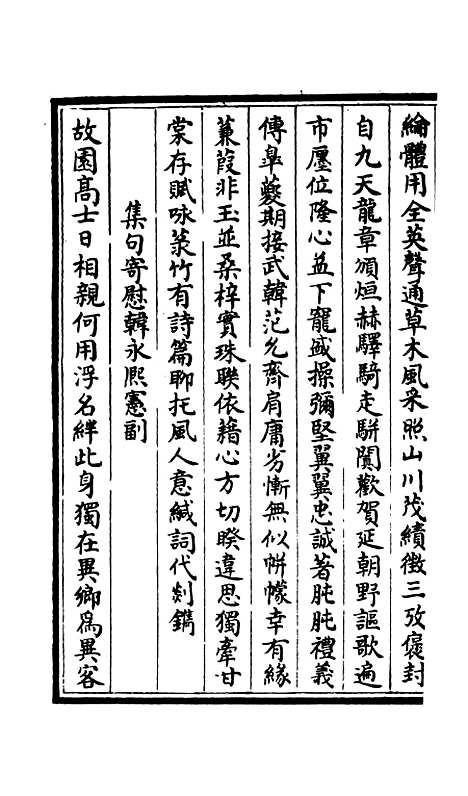 綸體用全英聲通草木風采照山川茂績徵三攷褒封
自九天龍章頒烜赫驛騎走駢闐歡賀延朝野謳歌遍
市廛位隆心益下寵盛操彌堅翼翼忠誠著肫肫禮義
傳臯夔期接武韓范允齊肩庸劣慚無似帡幪幸有緣
蒹葭非玉並桑梓實珠聯依藉心方切睽違思獨牽甘
棠存賦咏菉竹有詩篇聊托風人意緘詞代剞鐫
集句寄慰韓永熙憲副
故園高士日相親何用浮名絆此身獨在異鄉爲異客